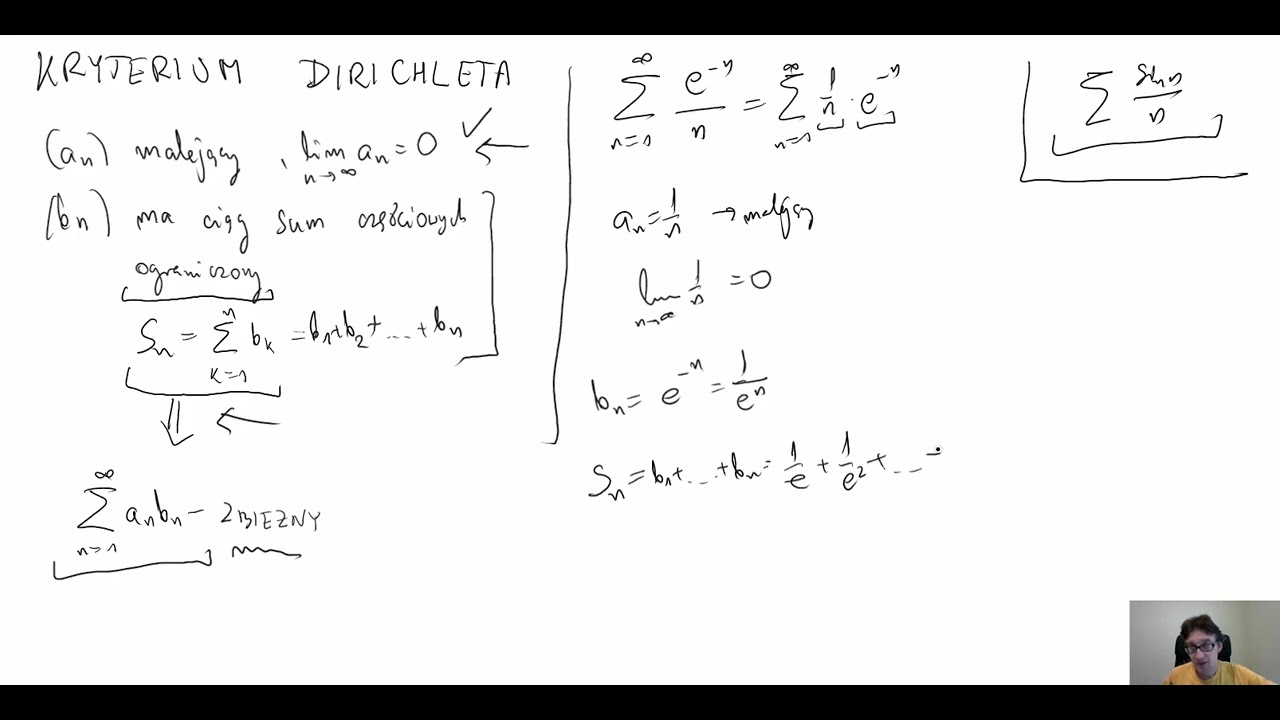 KRYTERIUM DIRICHLETA
(aₙ) malejący, lim n→∞ aₙ = 0 ✓ ←
(bₙ) ma ciąg sum częściowych
ograniczony
Sₙ = ∑ k=1 n bₖ = b₁+b₂+....+bₙ
⇓ ←
∑ n=1 ∞ aₙbₙ – ZBIEZNY
∑ n=1 ∞ e⁻ⁿ/n = ∑ n=1 ∞ 1/n · e⁻ⁿ
aₙ = 1/n → malejący
lim n→∞ 1/n = 0
bₙ = e⁻ⁿ = 1/eⁿ
Sₙ = b₁+...+bₙ = 1/e + 1/e² + ...
∑ sin n/n